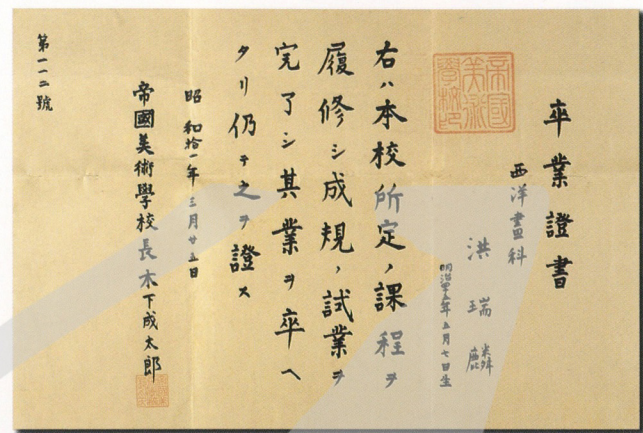 卒業證書
西洋畫科
洪瑞麟
明治四十五年五月七日生
帝國
美術
學校印
右ハ本校所定ノ課程ヲ
履修シ成規ノ試業ヲ
完了シ其業ヲ卒ヘ
タリ仍テ之ヲ證ス
昭和拾一年三月廿五日
帝國美術學校長木下成太郎
第一一二號